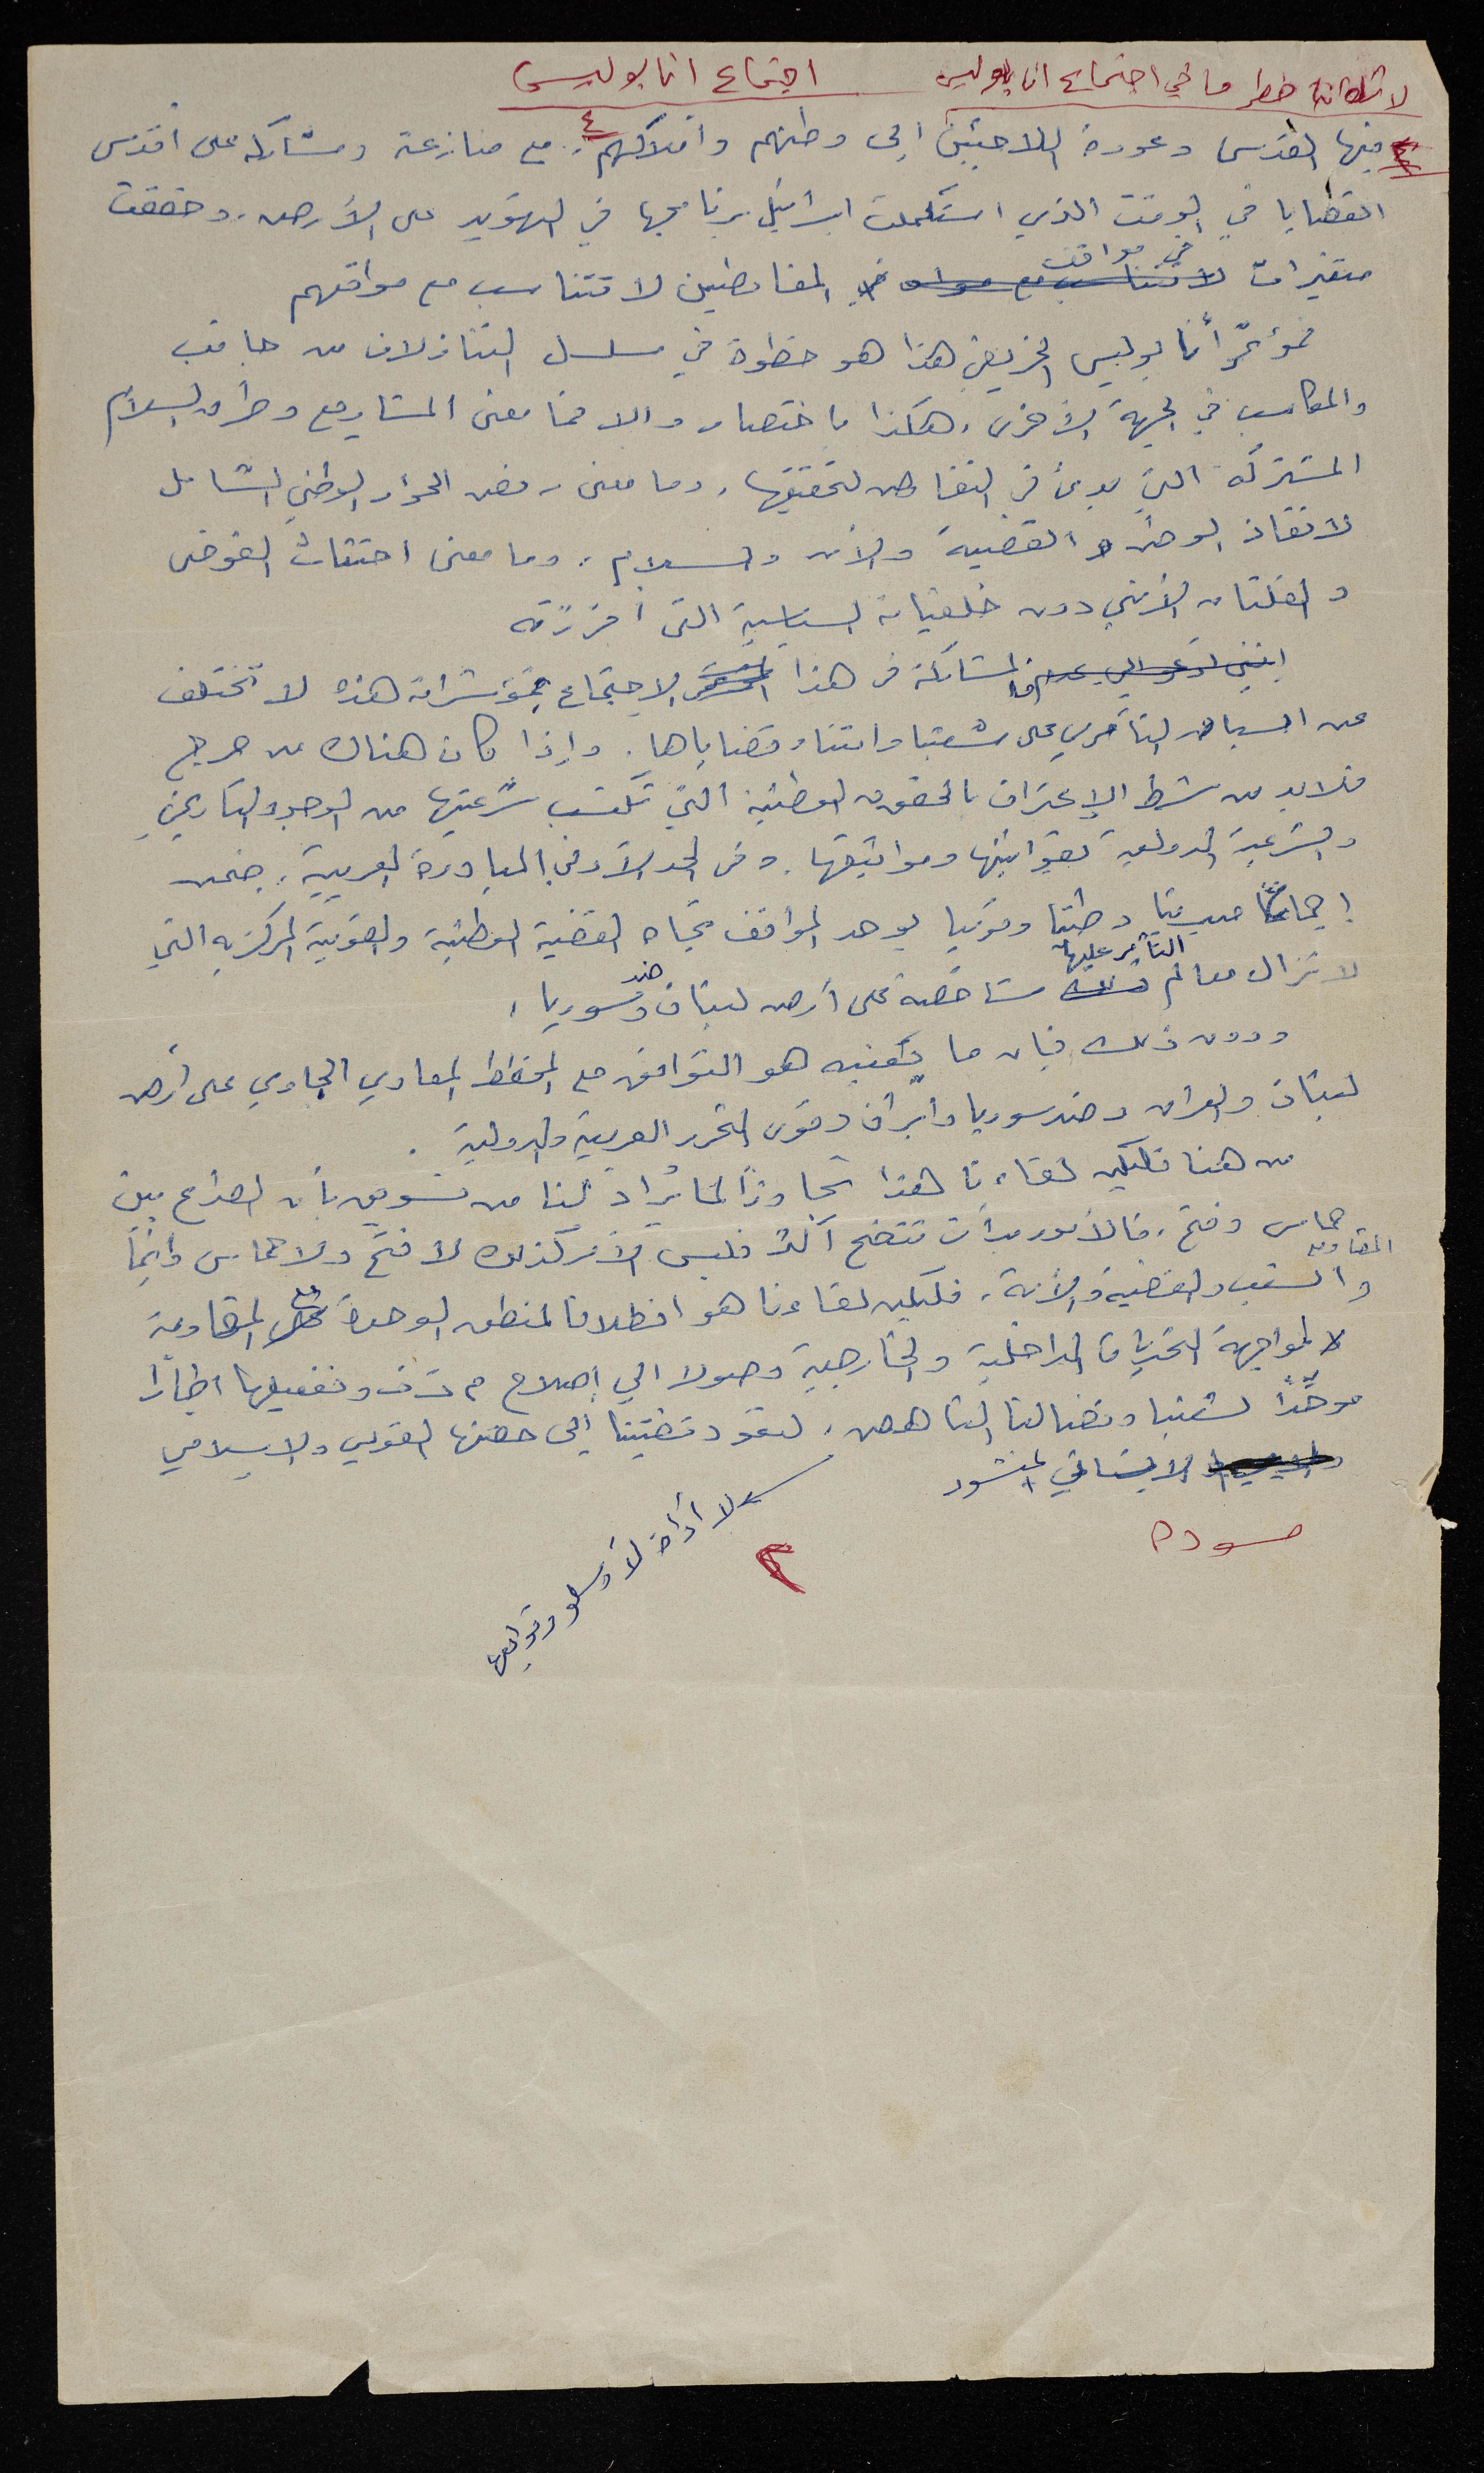 لا شك ان خطر ما في اجتماع انابوليس اجتماع انابوليس
٤
منها القدس وعودة اللاجئين الى وطنهم واملاكهم، مع منازعة ومشاركة على اقدس
القضايا في الوقت الذي استكملت اسرائيل برنامجها في التهويد على الأرض، وحققت
في مواقف
متغيرات لا تتناسب مع المفاوضين لا تتناسب مع مواقعهم
فمؤتمر أنابوليس الخريفي هذا هو خطوة في مسلسل التنازلات من جانب
والمكاسب في الجهة الأخرى، هكذا باختصار والا فما معنى المشاريع وطرق السلام
المشتركة التي بدئ في التفاوض لتحقيقها، وما معنى رفض الحوار الوطني الشامل
لانقاذ الوطن والقضية والأمن والسلام، وما معنى احتقان الفوضى
والفلتان الأمني دون خلفياته السياسية التي افرزته
المشاركة في هذا الاجتماع بمؤشراته هذه لا تختلف
عن السباق التآمري على شعبنا وامتنا وقضاياها. واذا كان هناك من حرج
فلا بد من شرط الاعتراف بالحقوق الوطنية التي تكتسب شرعيتها من الوجود التاريخي
والشرعية الدولية بقوانينها ومواثيقها، وفي الحد الأدنى المبادرة العربية، ضمن
إجماع مسبق وطنيا وقوميا يوحد المواقف تجاه القضية الوطنية والقومية المركزية التي
التآمر عليها
لا تزال معالم شاخصة على أرض لبنان وضد سوريا،
ودون ذلك فإن ما يعنيه هو التوافق مع المخطط المعادي الجاري على أرض
لبنان والعراق وضد سوريا وايران وقوى التحرر العربية والدولية.
من هنا فليكن لقاءنا هذا تجاوزاً لما يُراد لنا من تسويق بأن الصراع بين
حماس وفتح، فالأمور بدأت تتضح أكثر فليس الأمر كذلك لا فتح ولا حماس وانما
المقاومة
والشعب والقضية والأمة، فليكن لقاءنا هو انطلاقا لمنطق الوحدة مع المقاومة
لمواجهة التحديات الداخلية والخارجية وصولا الى إصلاح م ت ف وتفعيلها اطاراً
موحّداً لشعبنا ونضالنا الناهض، لتعود قضيتنا إلى حضنها القومي والاسلامي
الانساني المنشود
لا أداة لأوسلو وتوابعها
مسودة
٢